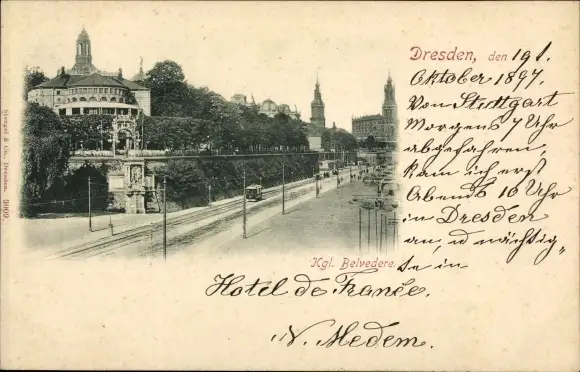 Dresden, den 19t.
Oktober 1897.
Von Stuttgart
Morgens 7 Uhr
abgefahren,
kam ich erst
Abends 10 Uhr
in Dresden
an, u nächtig-
te in
Kgl. Belvedere.
Hotel de France.
N. Medem.
Stengel & Co., Dresden. 5909.